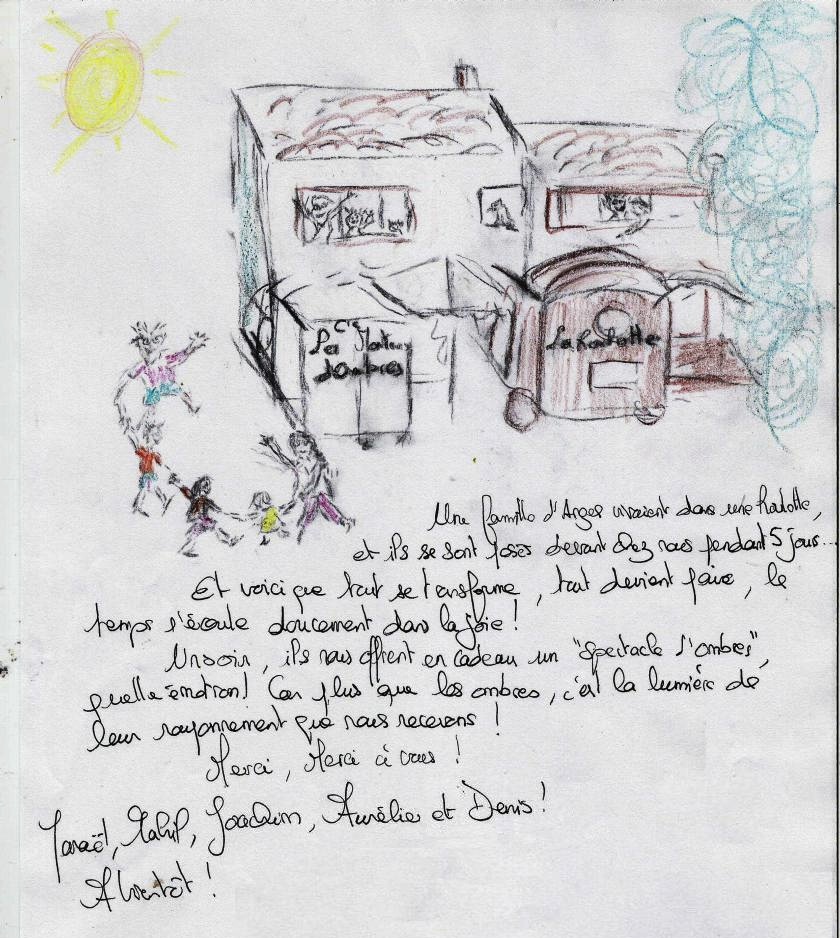 Cie
La Malle
d'Ombres
La Roulotte
Une famille d'Anges vivaient dans une Roulotte,
et ils se sont posés devant chez nous pendant 5 jours...
Et voici que tout se transforme, tout devient, le
temps s'écoule doucement dans la joie !
Un soir, ils nous offrent en cadeau un "spectacle d'ombres",
quelle émotion ! Car plus que les ombres, c'est la lumière de
leur rayonnement que nous recevons !
Merci, Merci à vous !
Joachim, Aurélie et Denis !
A bientôt !